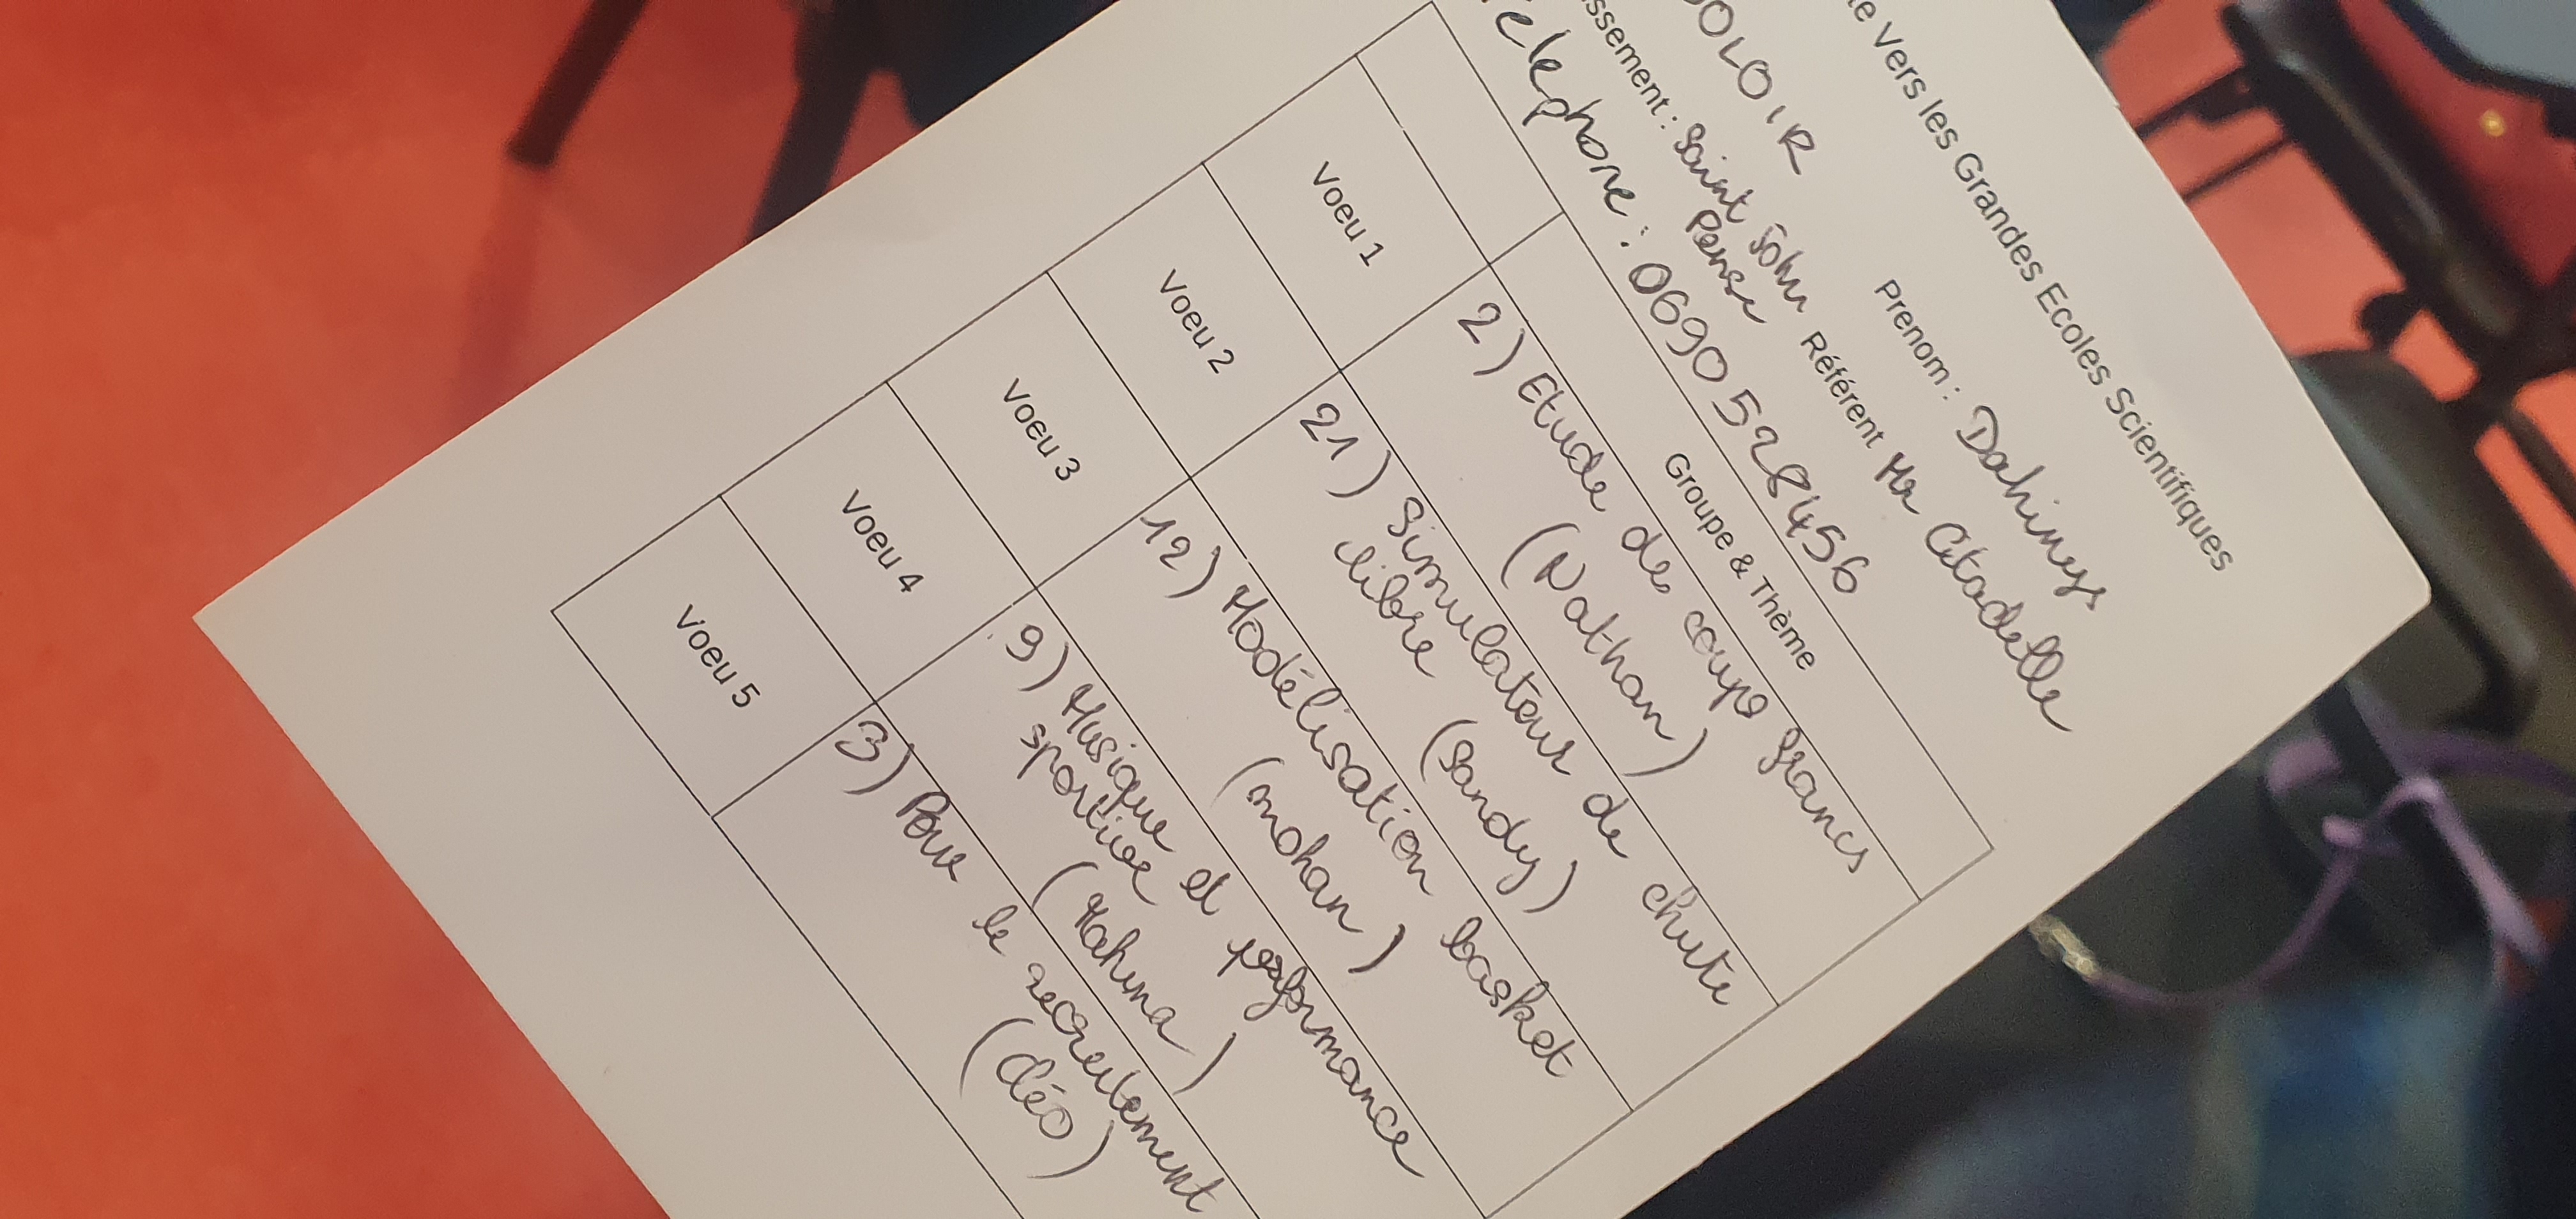 Vers les Grandes Ecoles Scientifiques
OLOIR Prenom : Dahimys
ssement : Saint John Perse Référent Mr Citadelle
Telephone : 0690528456
Groupe & Thème
Voeu 1 2) Etude de coups francs
(Nathan)
Voeu 2 21) Simulateur de chute
libre (Sandy)
Voeu 3 12) Modélisation basket
(mohan)
Voeu 4 9) Musique et performance
sportive (Mahina)
Voeu 5 3) Pour le recrutement
(Cléo)